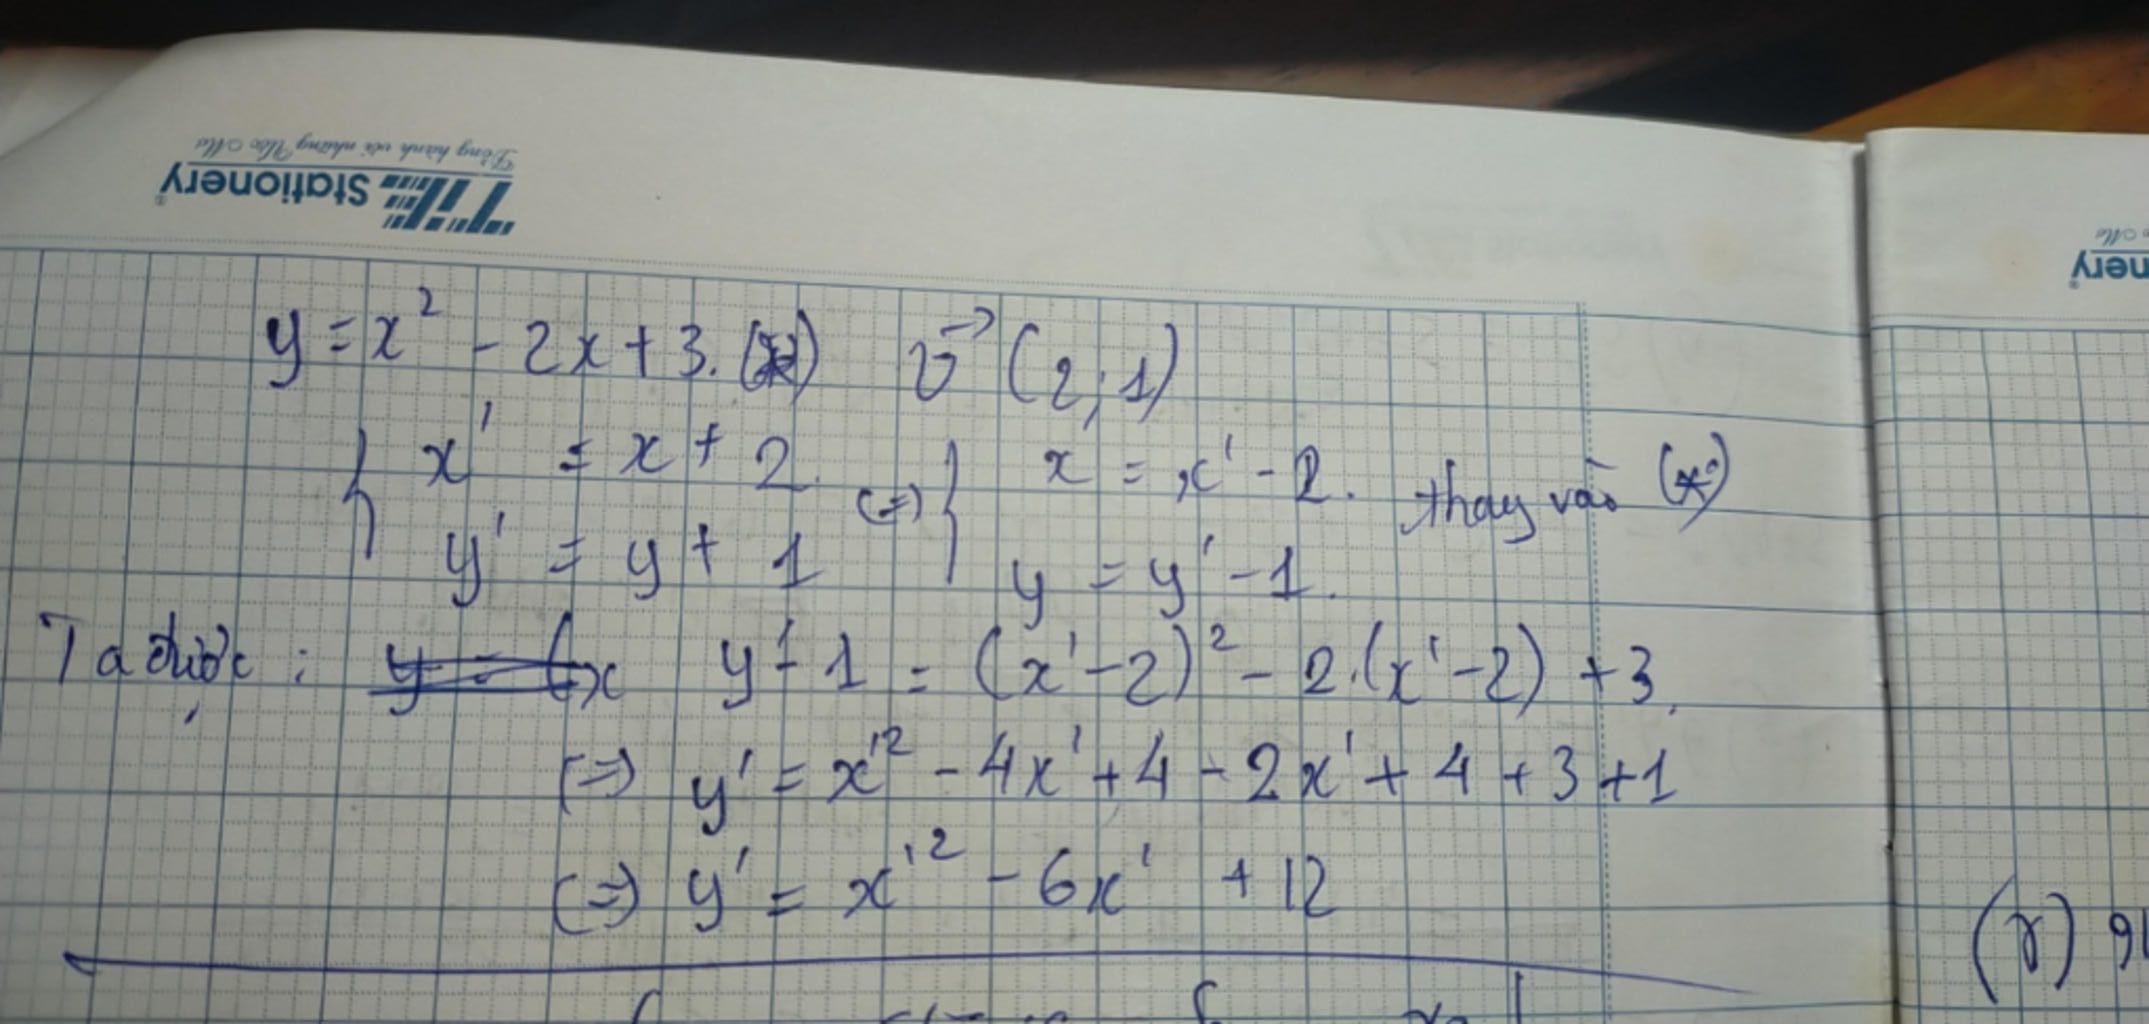 TiE Stationery
Đồng hành với những Ước Mơ
y = x² - 2x + 3. (*) v⃗ (2; 1)
{ x' = x + 2. (=) { x = x' - 2. thay vào (*)
y' = y + 1 y = y' - 1.
Ta được : y = (x y' - 1 = (x' - 2)² - 2.(x' - 2) + 3.
(=) y' = x'² - 4x' + 4 - 2x' + 4 + 3 + 1
(=) y' = x'² - 6x' + 12